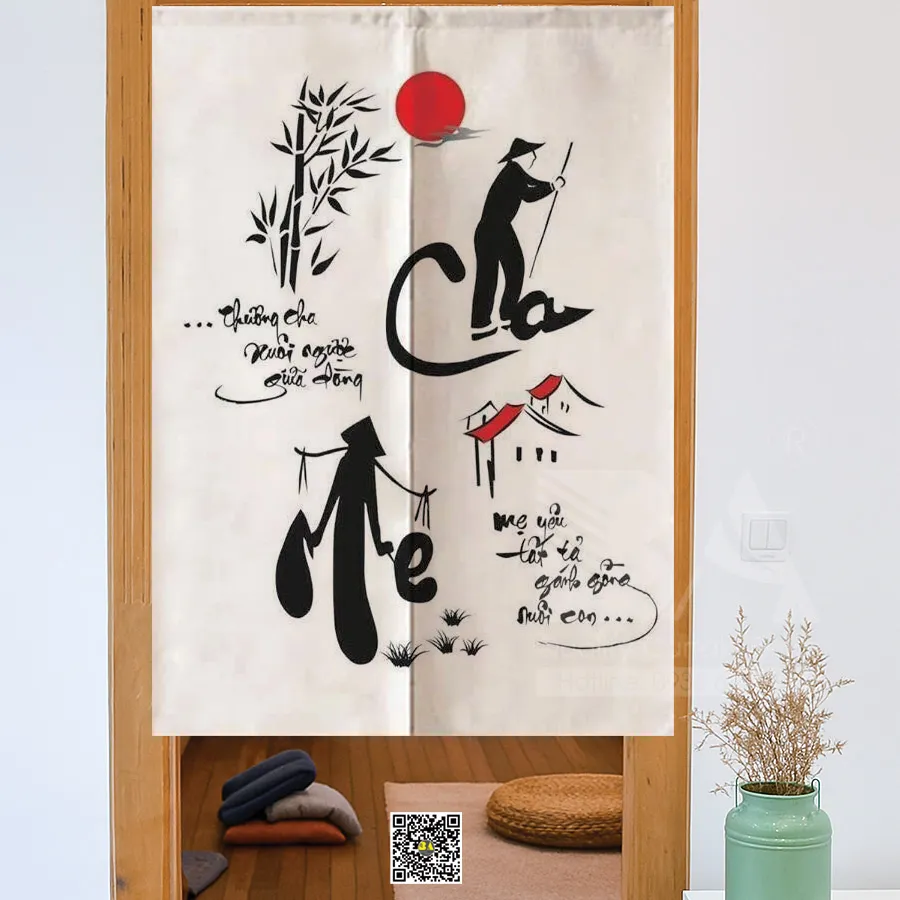 Cha
... Thương cha
xuôi ngược
giữa dòng
Mẹ
mẹ yêu
tất tả
gánh gồng
nuôi con ...
Hotline
3A